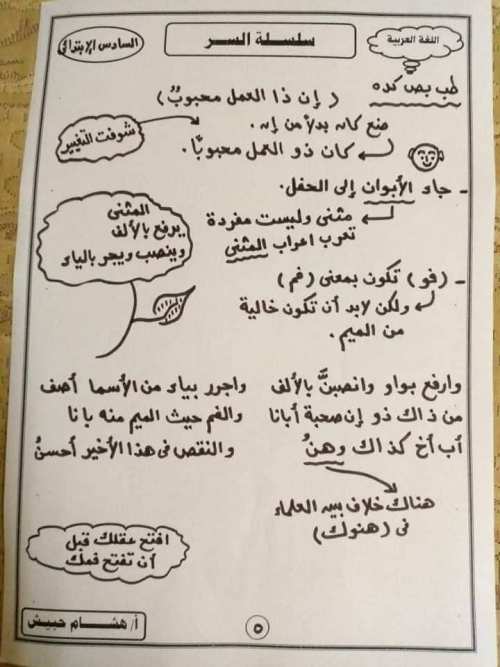 اللغة العربية
سلسلة السر
السادس الإبتدائي
طب بص كده
( إن ذا العمل محبوبٌ )
ضع كان بدلاً من إن .
شوفت التغيير
كان ذو العمل محبوبًا .
- جاء الأبوان إلى الحفل .
مثنى وليست مفردة
تعرب اعراب المثنى
المثنى
يرفع بالألف
وينصب ويجر بالياء
- (فو) تكون بمعنى (فم)
ولكن لابد أن تكون خالية
من الميم .
وارفع بواو وانصبنَّ بالألف واجرر بياء من الأسما أصف
من ذاك ذو إن صحبة أبانا والفم حيث الميم منه بانا
أب أخ كذاك وهنُ والنقص فى هذا الأخير أحسنُ
هناك خلاف بين العلماء
فى (هنوك)
افتح عقلك قبل
أن تفتح فمك
أ/ هشام حبيش
٥